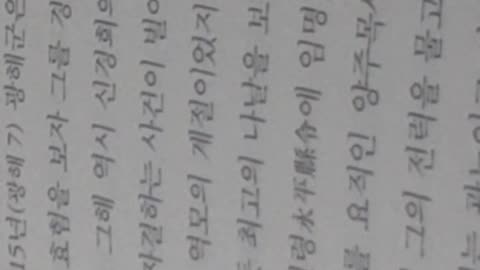 15년(광해7) 광해군은
효험을 보자 그를
그해 역시 신경희의
자결하는 사건이
역모의 계절이었지
최고의 나날을 보
령永平縣令에 임명
를 요직인 양주목사
그의 전력을 물고